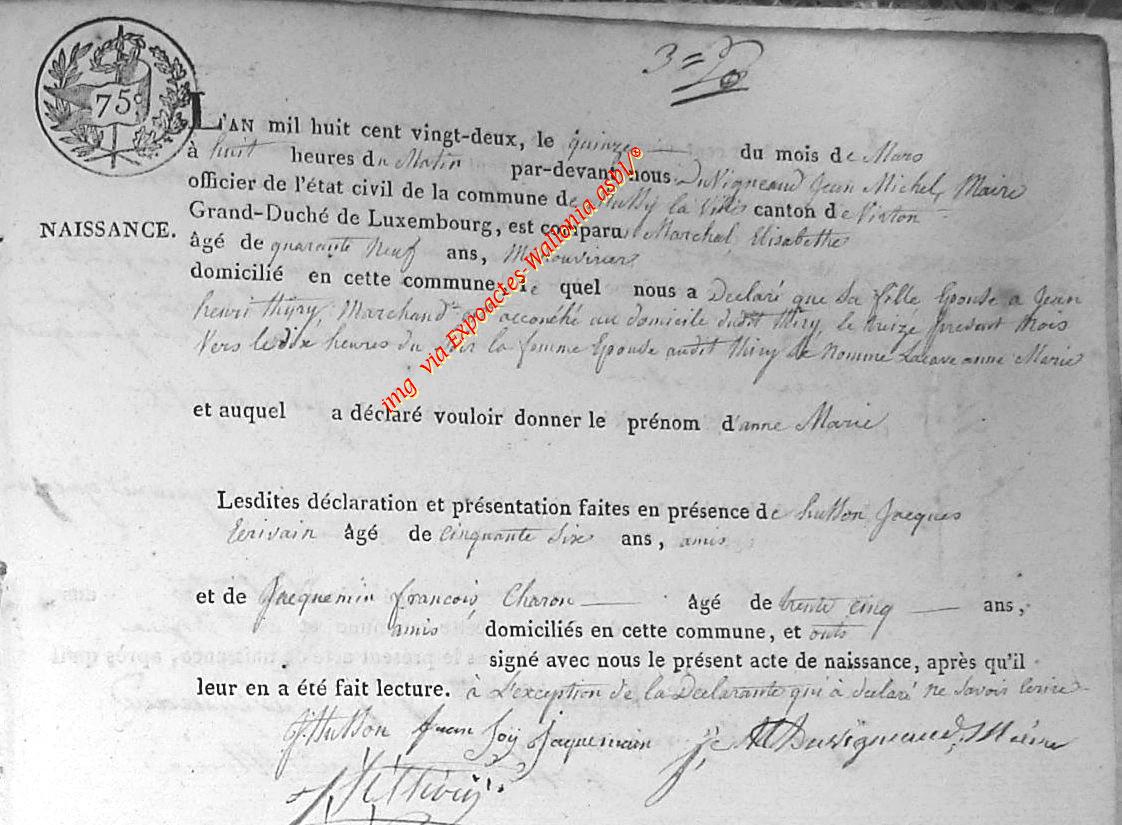 3=
75c
L'AN mil huit cent vingt-deux, le quinze du mois de Mars
à huit heures du Matin par-devant nous Duvigneaud Jean Michel, Maire
officier de l'état civil de la commune de la Ville canton de Virton
NAISSANCE.
Grand-Duché de Luxembourg, est comparu Marchal Elisabethe
âgé de quarante neuf ans,
domicilié en cette commune, le quel nous a Declaré que Sa fille Epouse a Jean
henri thiry, Marchand accouché au domicile dudit thiry, le treize present Mois
Vers le dix heures du Soir la femme Epouse audit thiry Se Nomme anne Marie
et auquel a déclaré vouloir donner le prénom d'anne Marie
Lesdites déclaration et présentation faites en présence de husson Jacques
Ecrivain âgé de Cinquante Six ans, amis
et de Jacquemin françois Charon âgé de trente cinq ans,
amis domiciliés en cette commune, et onts
signé avec nous le présent acte de naissance, après qu'il
leur en a été fait lecture. à L'exception de la Declarante qui à declaré ne Savoir Ecrire
JHusson Jaquemin Duvigneaud, Maire
img via Expoactes-Wallonia asbl/©